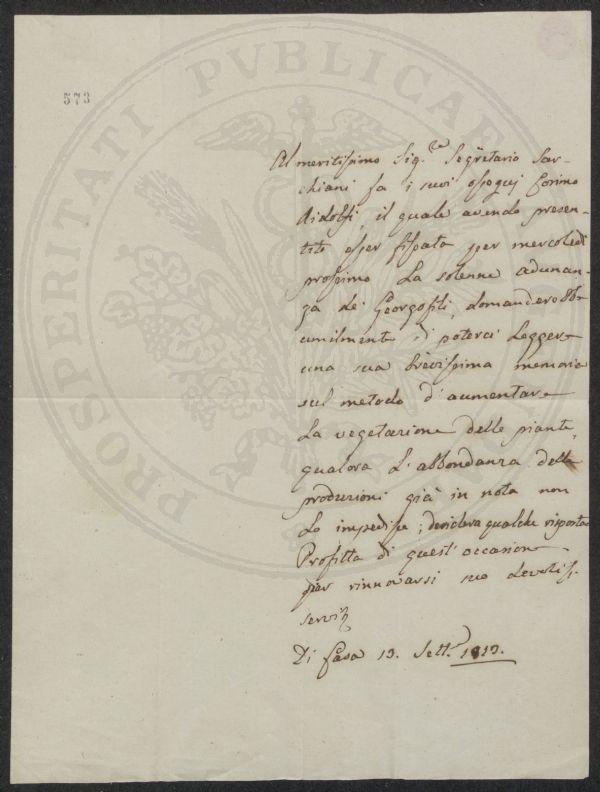 573
PROSPERITATI PVBLICAE
Al meritissimo Sig.re Segretario Sar-
chiani fa i suoi ossequj Cosimo
Ridolfi, il quale avendo presen-
tito esser fissata per mercoledì
prossimo la solenne adunan-
za dei Georgofili, domanderebbe
umilmente di poterci leggere
una sua brevissima memoria
sul metodo d'aumentare
la vegetazione delle piante,
qualora l'abbondanza delle
produzioni già in nota non
lo impedisse; desidera qualche risposta
Profitta di quest'occasione
per rinnovarsi suo devotiss.
serv.
Di Casa 13. Sett.e 1813.